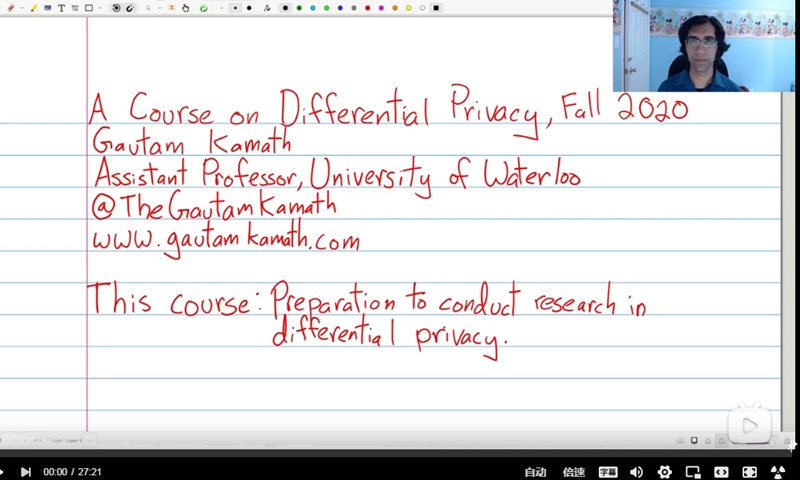 A Course on Differential Privacy, Fall 2020
Gautam Kamath
Assistant Professor, University of Waterloo
@TheGautamKamath
www.gautamkamath.com
This course: Preparation to conduct research in
differential privacy.
00:00 / 27:21
自动
倍速
字幕